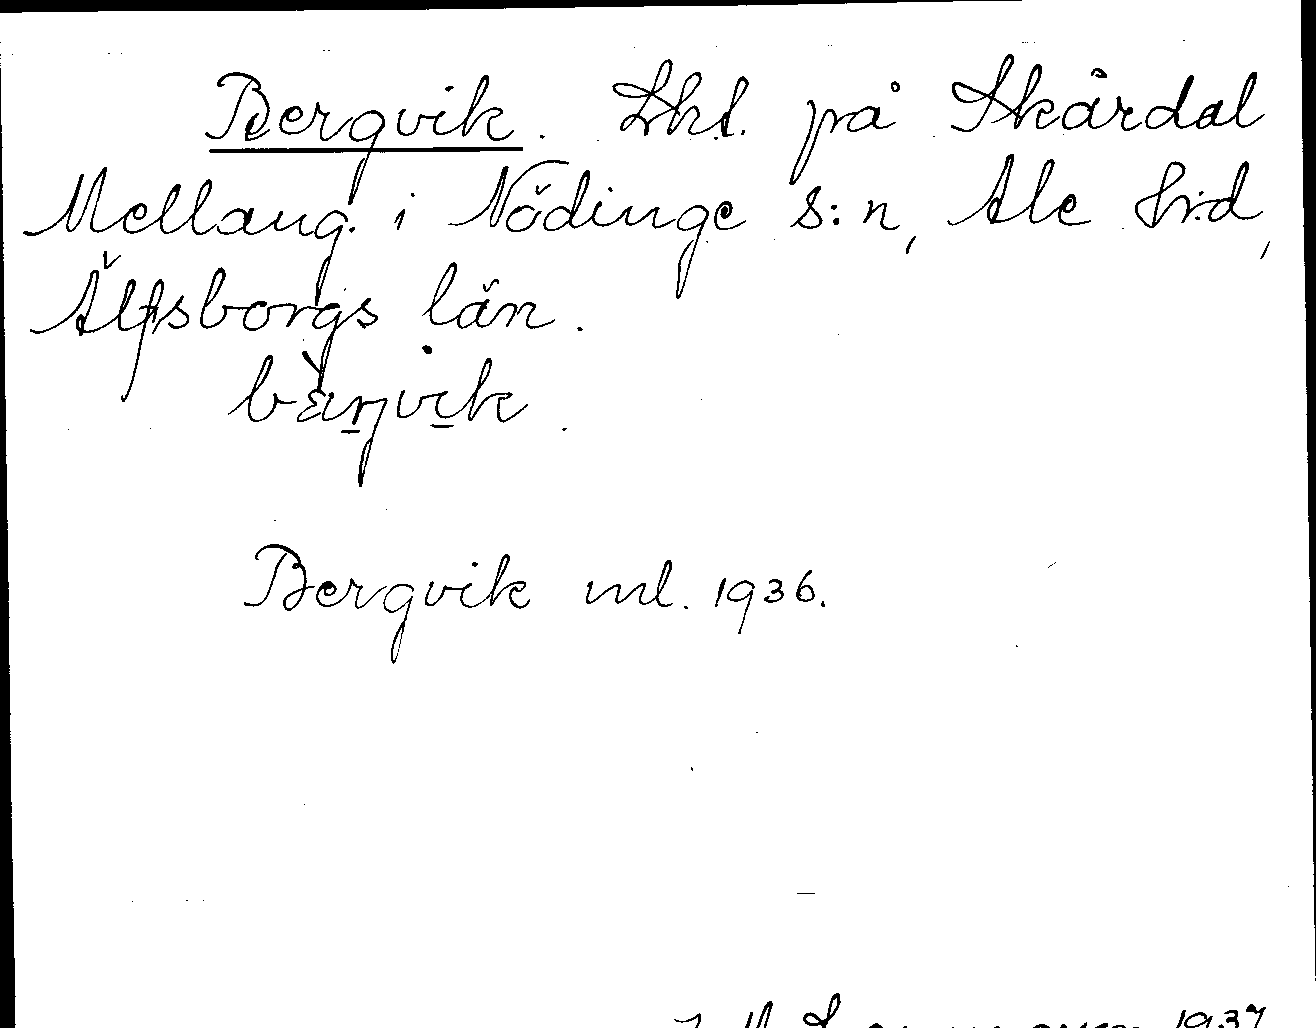 Bergvik. Lht. på Skårdal
Mellang. i Nödinge s:n, Ale hrd,
Älfsborgs län.
Bergvik ml. 1936.
1937